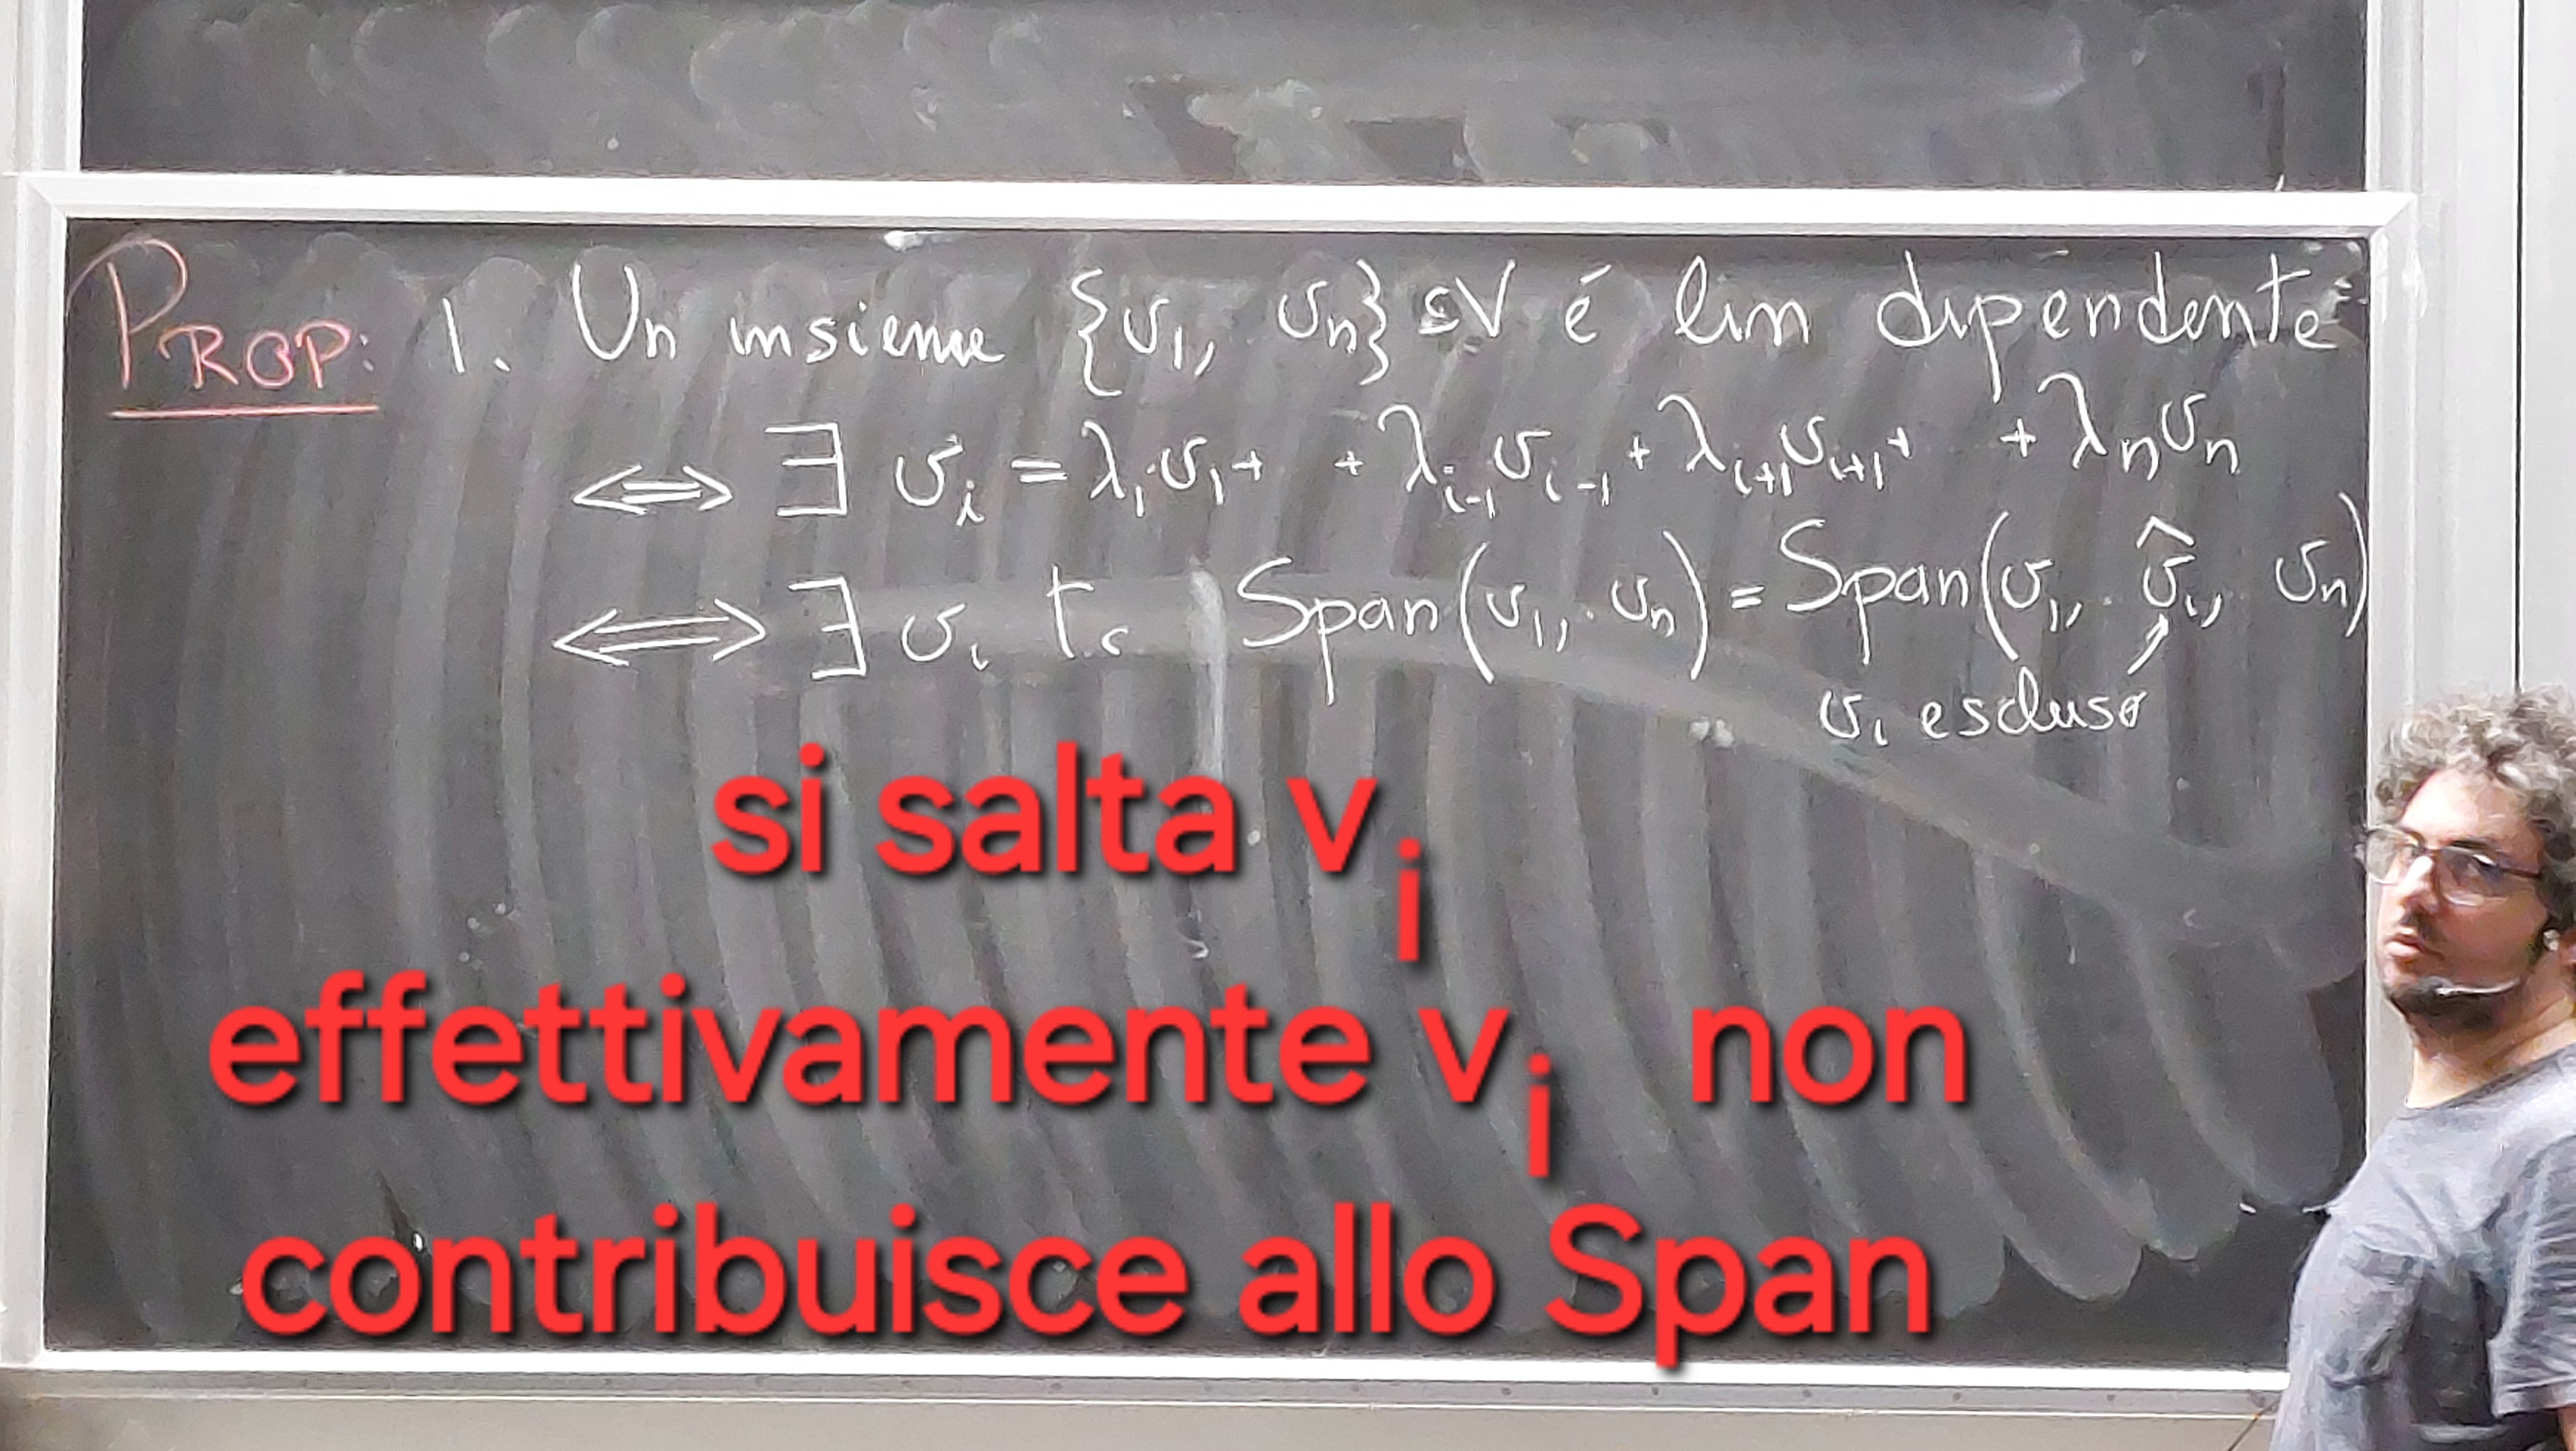 PROP: 1. Un insieme {v₁, vₙ} ⊆ V é lin dipendente
⟺ ∃ vᵢ = λ₁v₁ + + λᵢ₋₁vᵢ₋₁ + λᵢ₊₁vᵢ₊₁ + + λₙvₙ
⟺ ∃ vᵢ t.c. Span(v₁, vₙ) = Span(v₁, v̂ᵢ, vₙ)
vᵢ escluso
si salta vᵢ
effettivamente vᵢ non
contribuisce allo Span